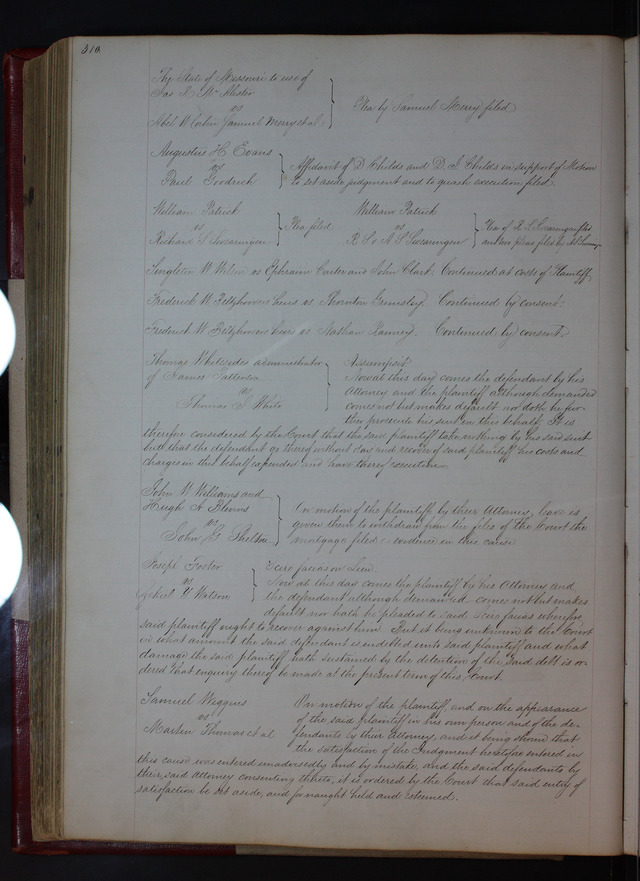 310
The State of Missouri to use of
Jas R Mc Alister
vs
Abel W Corbin Samuel Merry et al.
Plea by Samuel Merry filed
Augustus H Evans
vs
Paul Goodrich
Affidavit of D Childs and D. S. Childs in support of Motion
to set aside judgment and to quash execution filed
William Patrick
vs
Richard S Swearingen
Plea filed
William Patrick
vs
R S & A S Swearingen
Plea of R S Swearingen filed
and two pleas filed by
Singleton W Wilson vs Ephraim Carter and John Clark. Continued at costs of Plaintiff
Frederick W heirs vs Thornton Grimsley. Continued by consent.
Frederick W. heirs vs Nathan Ranney. Continued by consent.
Thomas Whitesides administrator
of James Patterson
vs
Thomas J White
Assumpsit
Now at this day comes the defendant by his
Attorney and the plaintiff although demanded
comes not but makes default nor doth he fur-
ther prosecute his suit in this behalf. It is
therefore considered by the Court that the said plaintiff take nothing by his said suit
but that the defendant go thereof without day and recover of said plaintiff his costs and
charges in this behalf expended and have thereof execution
John W Williams and
Hugh A Blevins
vs
John G Shelton
On motion of the plaintiffs by their Attorney, leave is
given them to withdraw from the files of the Court the
mortgage filed as evidence in this cause
Joseph Foster
vs
Y Watson
Scire facias on Lien
Now at this day comes the plaintiff by his Attorney and
the defendant although demanded comes not but makes
default nor hath he pleaded to said Scire facias wherefore
said plaintiff ought to recover against him. But it being unknown to the Court
in what amount the said defendant is indebted unto said plaintiff and what
damage the said plaintiff hath sustained by the detention of the said debt is or-
dered that enquiry thereof be made at the present term of this Court.
Samuel Wiggins
vs
Martin Thomas et al
On motion of the plaintiff, and on the appearance
of the said plaintiff in his own person and of the de-
fendants by their Attorney, and it being shown that
the satisfaction of the Judgment heretofore entered in
this cause was entered unadvisedly and by mistake, and the said defendants by
their said Attorney consenting thereto, it is ordered by the Court that said entry of
satisfaction be set aside, and for naught held and esteemed.